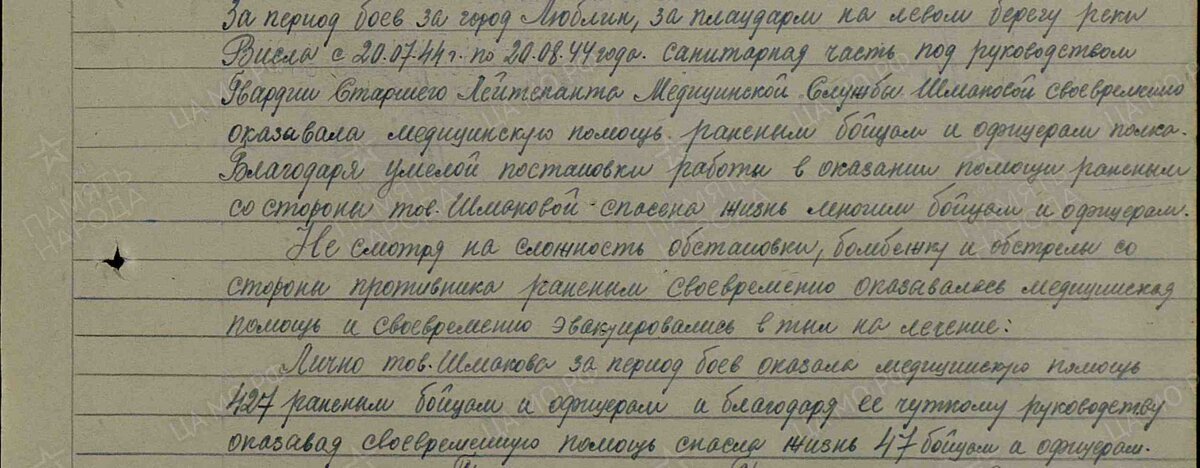 За период боев за город Люблин, за плацдарм на левом берегу реки
Висла с 20.07.44 г. по 20.08.44 года. санитарная часть под руководством
Гвардии Старшего Лейтенанта Медицинской Службы Шмаковой своевременно
оказывала медицинскую помощь раненым бойцам и офицерам полка.
Благодаря умелой постановки работы в оказании помощи раненым
со стороны тов. Шмаковой спасена жизнь многим бойцам и офицерам.
Не смотря на сложность обстановки, бомбежку и обстрелы со
стороны противника раненым своевременно оказывалась медицинская
помощь и своевременно эвакуировались в тыл на лечение:
Лично тов. Шмакова за период боев оказала медицинскую помощь
427 раненым бойцам и офицерам и благодаря ее чуткому руководству
оказывая своевременную помощь спасла жизнь 47 бойцам и офицерам.